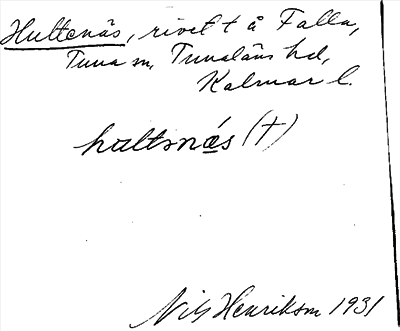 Hultenäs, rivet t å Falla,
Tuna sn, Tunaläns hd,
Kalmar l.
hultnä́s (†)
Nils Henrikson 1931